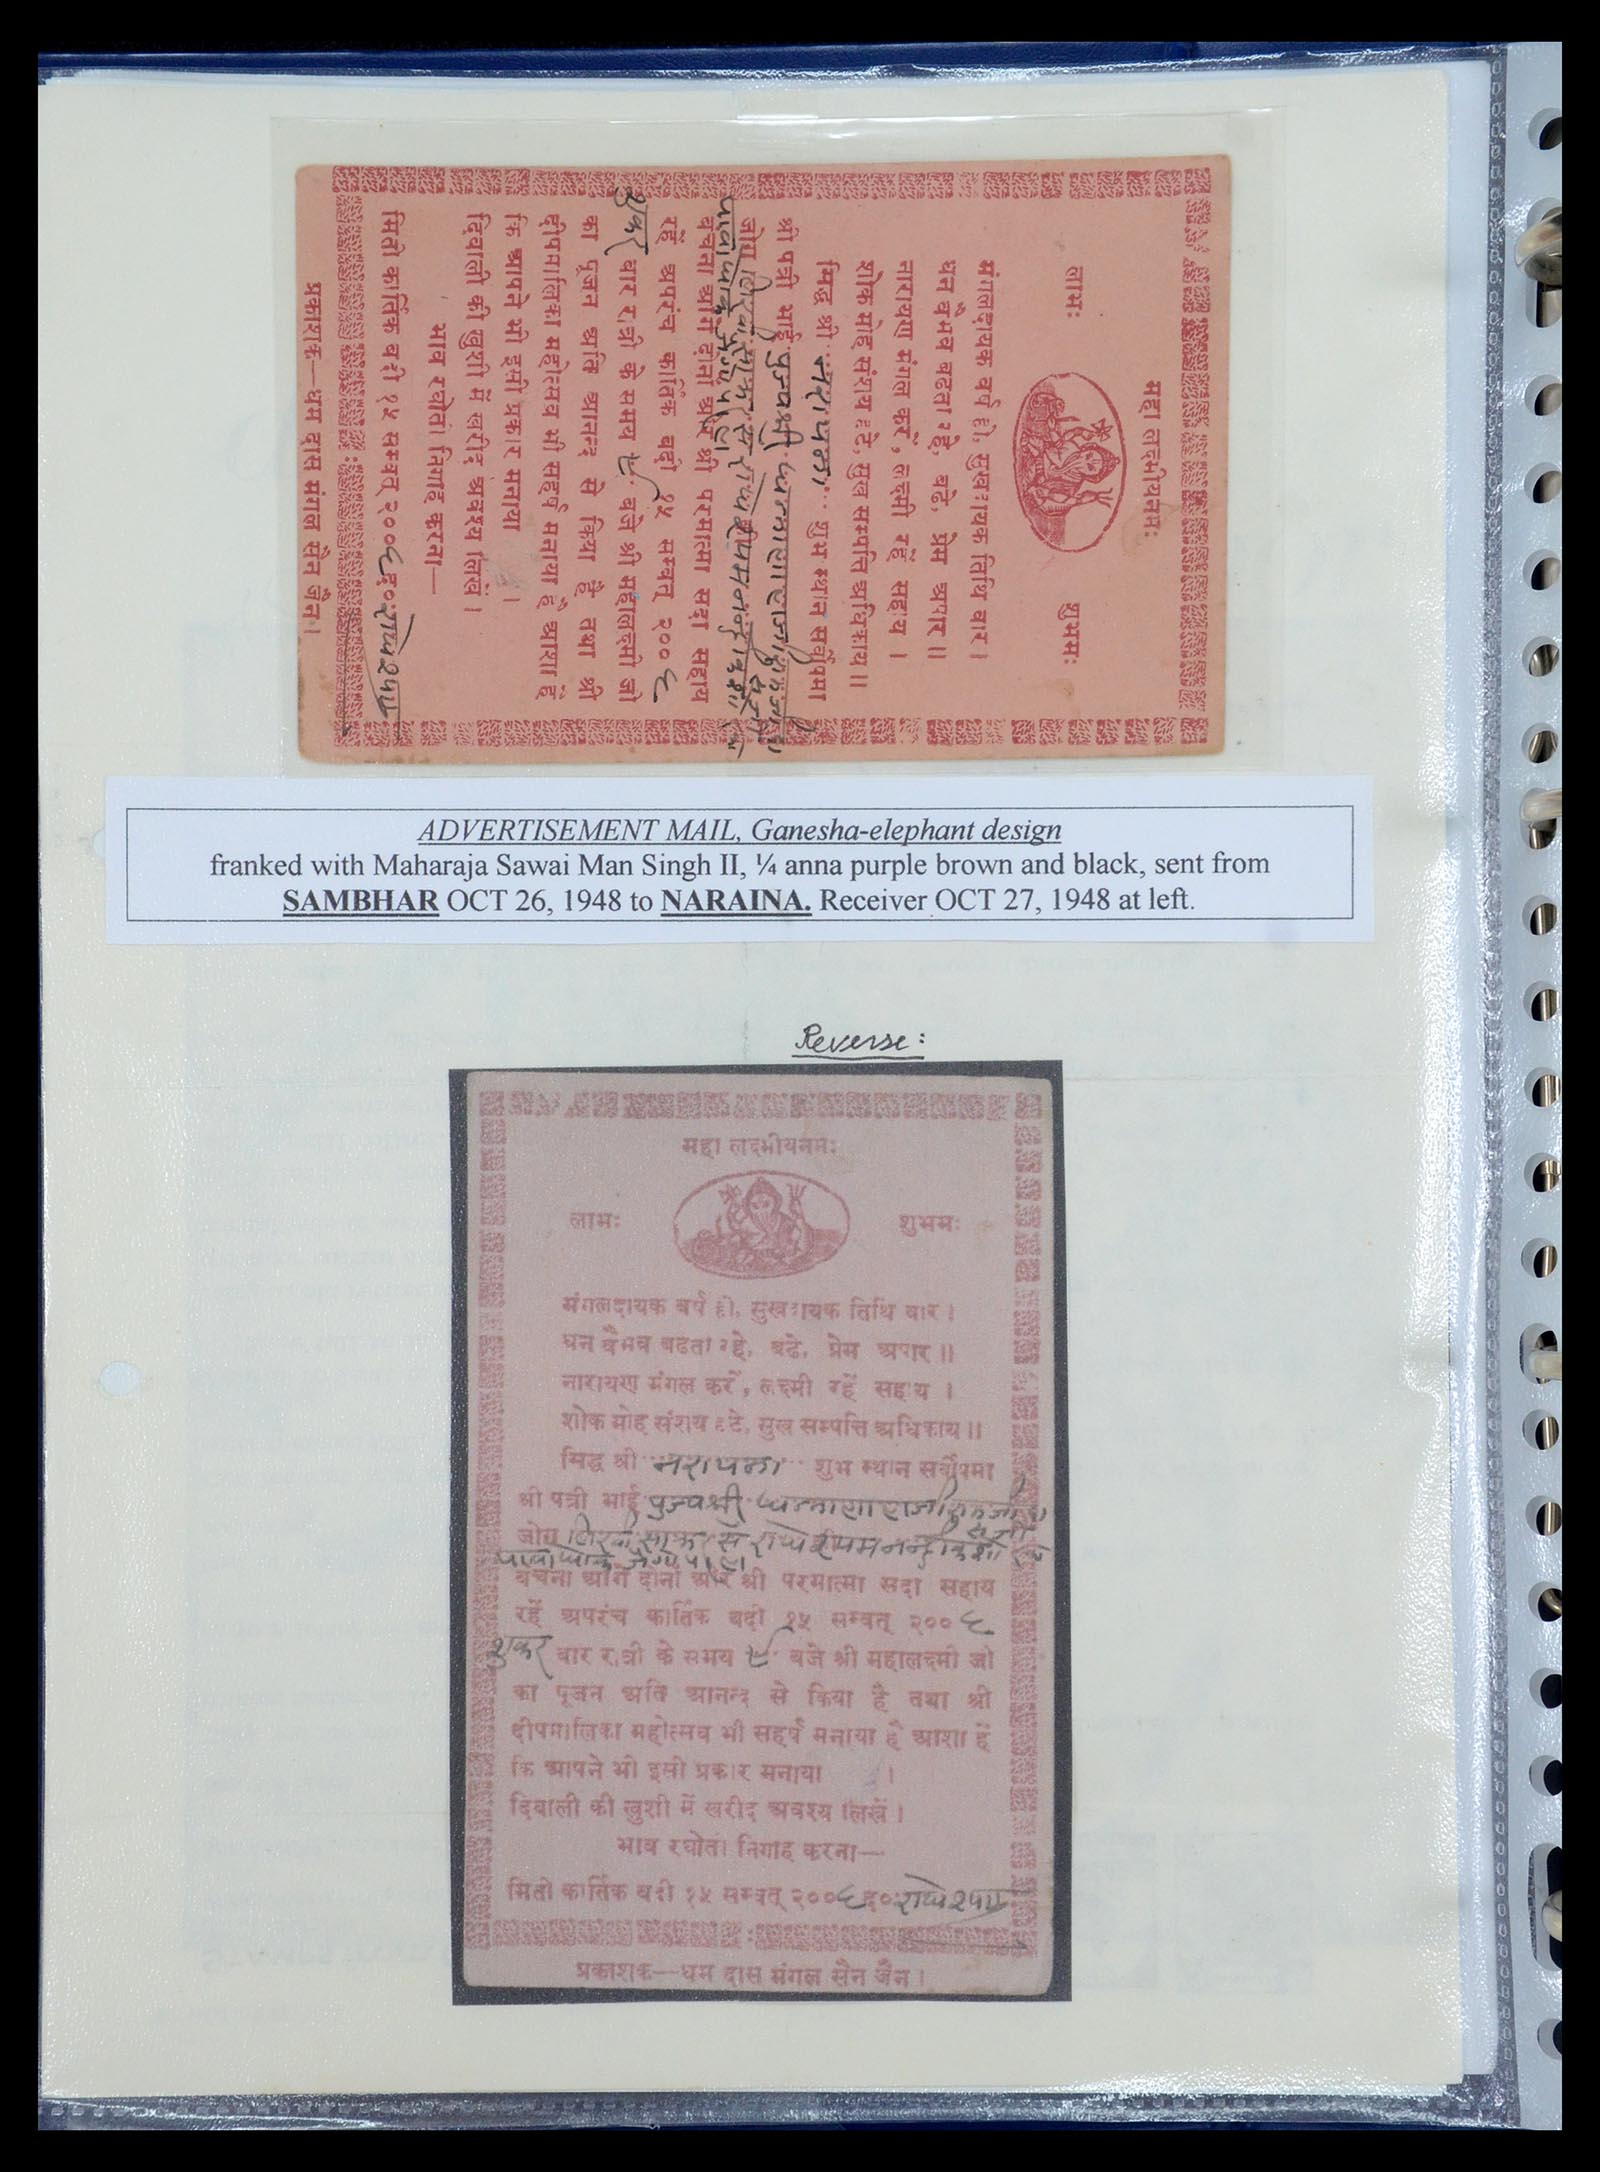 महा लक्ष्मीयनमः
लाभः शुभमः
मंगलदायक वर्ष हो, सुखदायक तिथि वार ।
धन वैभव बढता रहे, बढे, प्रेम अपार ॥
नारायण मंगल करें, लक्ष्मी रहें सहाय ।
शोक मोह संशय हटे, सुख सम्पत्ति अधिकाय ॥
सिद्ध श्री नरायना शुभ स्थान सर्वोपमा
श्री पत्री भाई पुज्य श्री
जोग
बचना आगे दोनों और श्री परमात्मा सदा सहाय
रहें अपरंच कार्तिक बदी १५ सम्वत् २००६
शुकर वार रात्री के समय ८ बजे श्री महालक्ष्मी जी
का पूजन अति आनन्द से किया है तथा श्री
दीपमालिका महोत्सव भी सहर्ष मनाया है आशा हैं
कि आपने भी इसी प्रकार मनाया ।
दिवाली की खुशी में खरीद अवश्य लिखें ।
भाव रखोता निगाह करना—
मिती कार्तिक बदी १५ सम्वत् २००६ द० राधेश्याम
प्रकाशक—धम दास मंगल सैन जैन ।
ADVERTISEMENT MAIL, Ganesha-elephant design
franked with Maharaja Sawai Man Singh II, ¼ anna purple brown and black, sent from
SAMBHAR OCT 26, 1948 to NARAINA. Receiver OCT 27, 1948 at left.
Reverse:
महा लक्ष्मीयनमः
लाभः शुभमः
मंगलदायक वर्ष हो, सुखदायक तिथि वार ।
धन वैभव बढता रहे, बढे, प्रेम अपार ॥
नारायण मंगल करें, लक्ष्मी रहें सहाय ।
शोक मोह संशय हटे, सुख सम्पत्ति अधिकाय ॥
सिद्ध श्री नरायना शुभ स्थान सर्वोपमा
श्री पत्री भाई पुज्य श्री
जोग
बचना आगे दोनों और श्री परमात्मा सदा सहाय
रहें अपरंच कार्तिक बदी १५ सम्वत् २००६
शुकर वार रात्री के समय ८ बजे श्री महालक्ष्मी जी
का पूजन अति आनन्द से किया है तथा श्री
दीपमालिका महोत्सव भी सहर्ष मनाया है आशा हैं
कि आपने भी इसी प्रकार मनाया ।
दिवाली की खुशी में खरीद अवश्य लिखें ।
भाव रखोता निगाह करना—
मिती कार्तिक बदी १५ सम्वत् २००६ द० राधेश्याम
प्रकाशक—धम दास मंगल सैन जैन ।